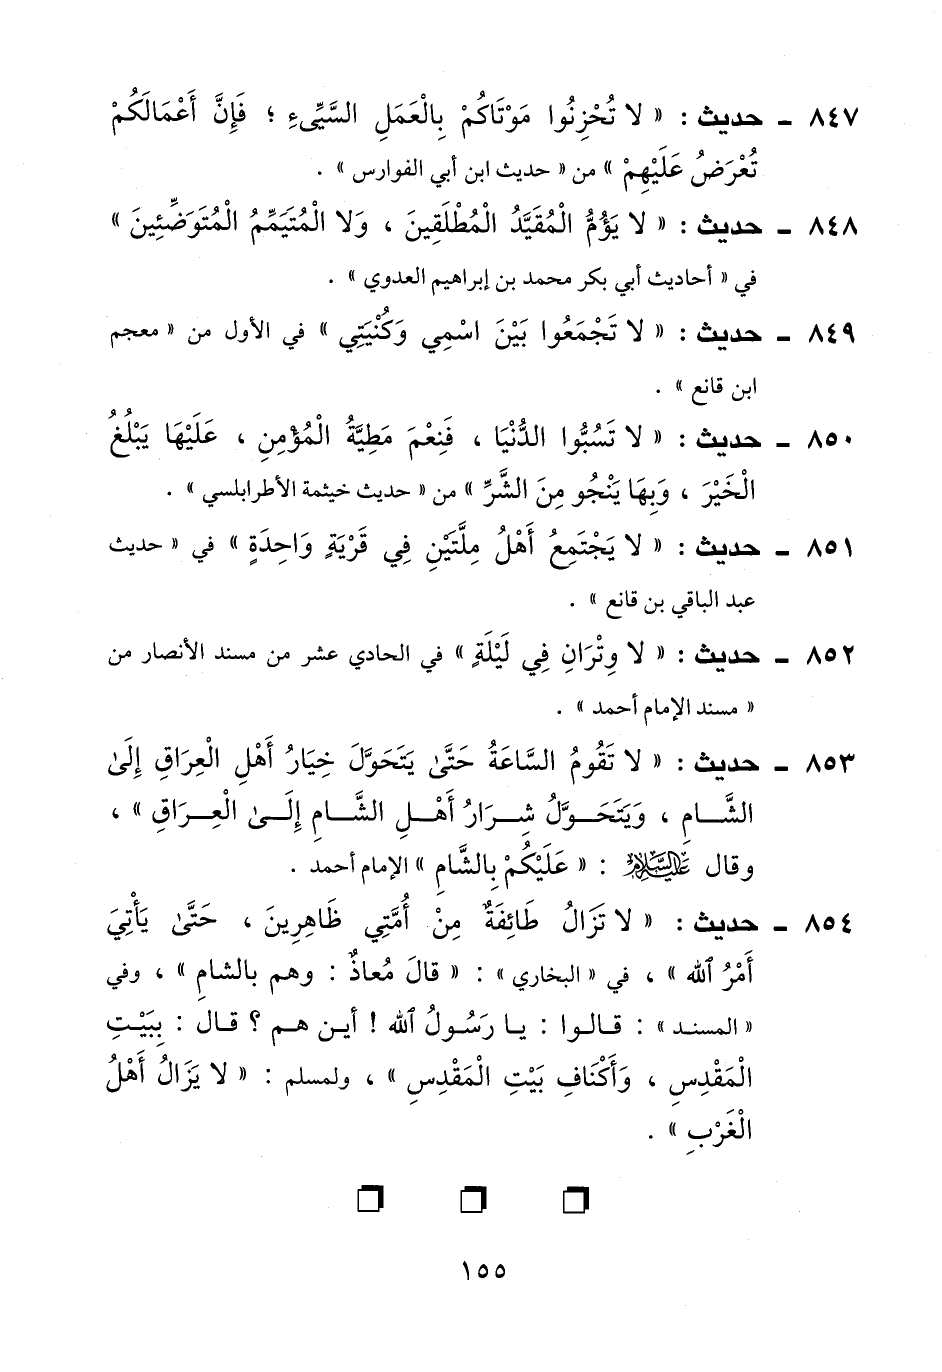 ٨٤٧ ـ حديث : « لا تُحْزِنُوا مَوْتَاكُمْ بِالْعَمَلِ السَّيِّىءِ ؛ فَإِنَّ أَعْمَالَكُمْ
تُعْرَضُ عَلَيْهِمْ » من « حديث ابن أبي الفوارس » .
٨٤٨ ـ حديث : « لا يَؤُمُّ الْمُقَيَّدُ الْمُطْلَقِينَ ، وَلا الْمُتَيَمِّمُ الْمُتَوَضِّئِينَ »
في « أحاديث أبي بكر محمد بن إبراهيم العدوي » .
٨٤٩ ـ حديث : « لا تَجْمَعُوا بَيْنَ اسْمِي وَكُنْيَتِي » في الأول من « معجم
ابن قانع » .
٨٥٠ ـ حديث : « لا تَسُبُّوا الدُّنْيَا ، فَنِعْمَ مَطِيَّةُ الْمُؤْمِنِ ، عَلَيْهَا يَبْلُغُ
الْخَيْرَ ، وَبِهَا يَنْجُو مِنَ الشَّرِّ » من « حديث خيثمة الأطرابلسي » .
٨٥١ ـ حديث : « لا يَجْتَمِعُ أَهْلُ مِلَّتَيْنِ فِي قَرْيَةٍ وَاحِدَةٍ » في « حديث
عبد الباقي بن قانع » .
٨٥٢ ـ حديث : « لا وِتْرَانِ فِي لَيْلَةٍ » في الحادي عشر من مسند الأنصار من
« مسند الإمام أحمد » .
٨٥٣ ـ حديث : « لا تَقُومُ السَّاعَةُ حَتَّىٰ يَتَحَوَّلَ خِيَارُ أَهْلِ الْعِرَاقِ إِلَىٰ
الشَّـامِ ، وَيَتَحَـوَّلُ شِـرَارُ أَهْـلِ الشَّـامِ إِلَـىٰ الْعِـرَاقِ » ،
وقال عليه السلام : « عَلَيْكُمْ بِالشَّامِ » الإمام أحمد .
٨٥٤ ـ حديث : « لا تَزَالُ طَائِفَةٌ مِنْ أُمَّتِي ظَاهِرِينَ ، حَتَّىٰ يَأْتِيَ
أَمْرُ ٱلله » ، في « البخاري » : « قالَ مُعاذٌ : وهم بالشامِ » ، وفي
« المسند » : قـالـوا : يـا رَسُـولُ ٱلله ! أيـن هـم ؟ قـال : بِبَيْـتِ
الْمَقْدِسِ ، وَأَكْنَافِ بَيْتِ الْمَقْدِسِ » ، ولمسلم : « لا يَزَالُ أَهْلُ
الْغَرْبِ » .
١٥٥